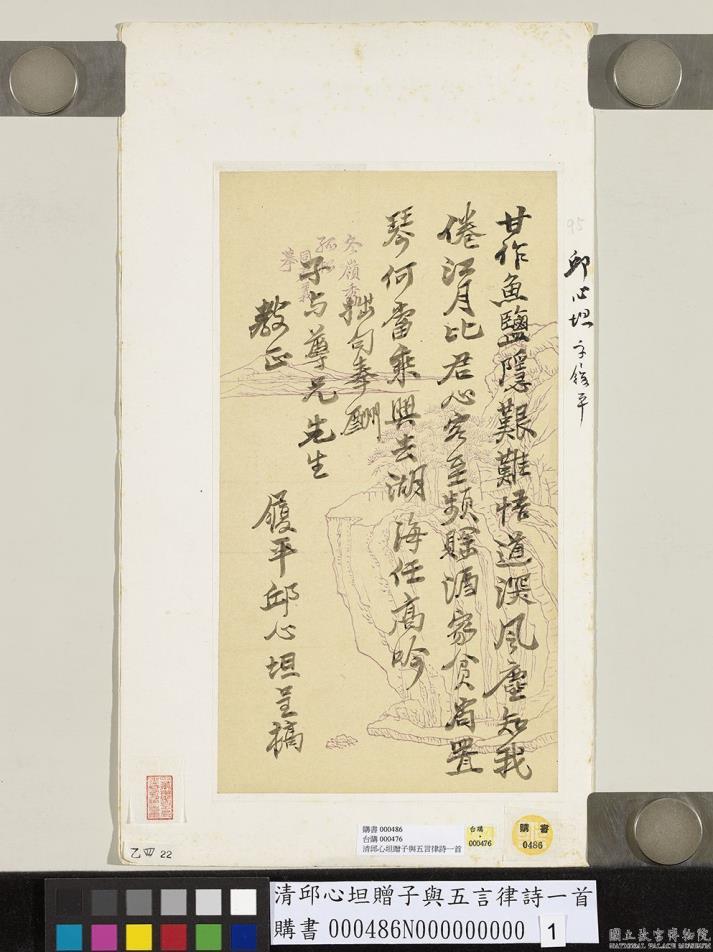 甘作魚鹽隱艱難悟道深風塵知我
倦江月比君心客至頻賖酒家貧尚置
琴何當乘興去湖海任高吟
拙句奉酬
子与尊兄先生
教正
履平邱心坦呈稿
冬嶺秀
孤松
95
邱心坦字履平
乙四 22
購書 000486
台購 000476
清邱心坦贈子與五言律詩一首
台購
000476
購書
0486
清邱心坦贈子與五言律詩一首
購書 000486N000000000
1
國立故宮博物院
NATIONAL PALACE MUSEUM